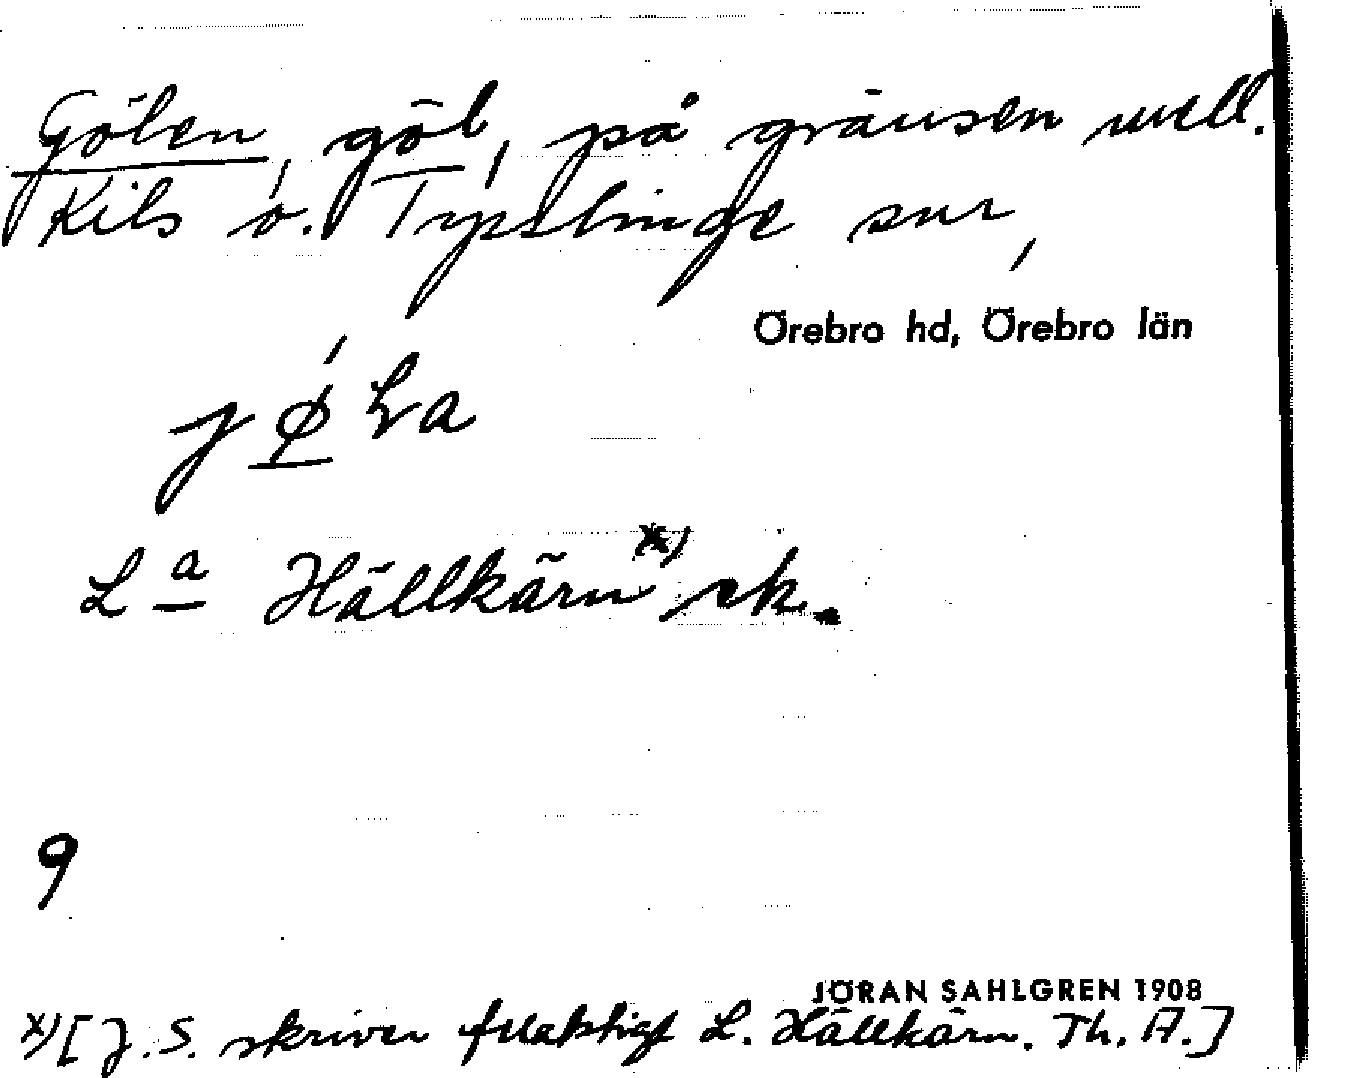 Gölen, göl, på gränsen mell.
Kils o. Tysslinge snr,
Örebro hd, Örebro län
La Hällkärn x) ek.
9
JÖRAN SAHLGREN 1908
x) [J. S. skriver felaktigt L. Hällkärn. Th. A.]